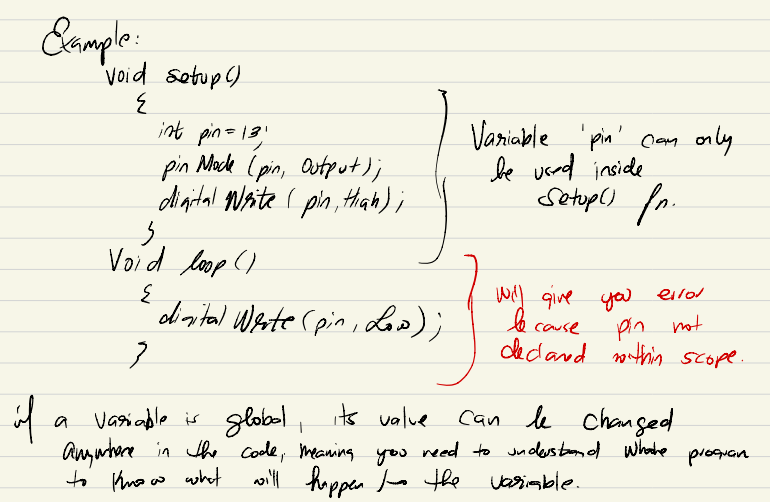 Example:
Void setup()
{
int pin = 13;
pinMode (pin, Output);
digital Write ( pin, High);
}
Variable 'pin' can only
be used inside
setup() fn.
Void loop()
{
digital Write (pin, Low);
}
Will give you error
because pin not
declared within scope.
if a variable is global, its value can be changed
anywhere in the code, meaning you need to understand whole program
to know what will happen to the variable.